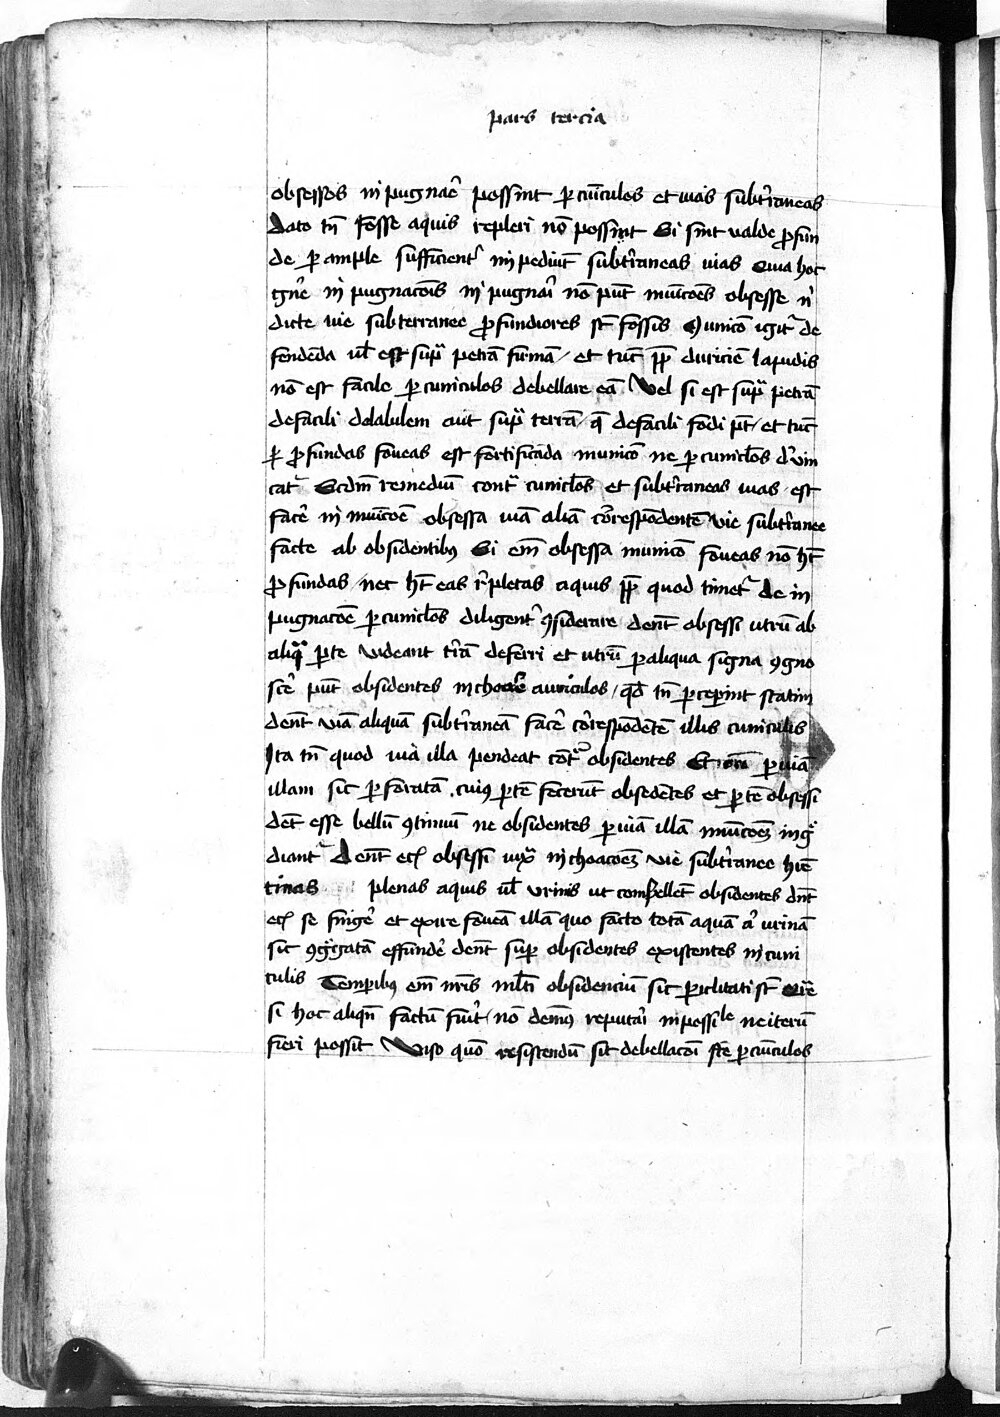 pars tercia
obsessos inpugnare possint per cuniculos et vias subterraneas
Dato tamen fosse aquis repleri non possint Si sint valde profun
de per ample sufficienter inpediunt subterraneas vias Quia hoc
genere inpugnacionis inpugnari non possunt municiones obsesse nisi
dicte vie subterranee profundiores sint fossis Municio igitur de
fendenda vel est supra petram firmam / et tunc propter duriciem lapidis
non est facile per cuniculos debellare eam Vel si est supra petram
defacili dolabilem aut supra terram / que defacili fodi potest / et tunc
per profundas foveas est fortificanda municio ne per cuniculos devin
catur Secundum remedium contra cuniculos et subterraneas vias est
facere in municione obsessa viam aliam correspondentem vie subterranee
facte ab obsidentibus Si enim obsessa municio foveas non habet
profundas nec habet eas repletas aquis propter quod timetur de in
pugnacione per cuniculos diligenter considerare debent obsessi utrum ab
aliqua parte videant terram deferri et utrum per aliqua signa cogno
scere possunt obsidentes inchoare cuniculos / quod cum perceperint statim
debent viam aliquam subterraneam facere correspondentem illis cuniculis
Ita tamen quod via illa pendeat contra obsidentes Et per viam
illam sic perforatam cuius partem fecerunt obsedentes et partem obsessi
debet esse bellum continuum ne obsidentes per viam illam municionem ingre
diantur Debent eciam obsessi iuxta inchoacionem vie subterranee habere
tinas plenas aquis vel urinis ut cum bellent obsidentes debent
eciam se fingere et exire foveam illam quo facto totam aquam aut urinam
sic congregatam effundere debent super obsidentes existentes in cuni
culis Temporibus enim nostris multi obsidencium sic periclitati sunt Quare
si hoc aliquando factum fuit / non debemus reputare inpossibile ne iterum
fieri possit Viso quomodo resistendum sit debellacioni facte per cuniculos